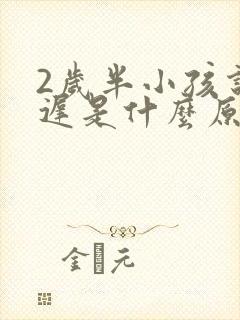 2歲半小孩
遲是什麼原
金 元